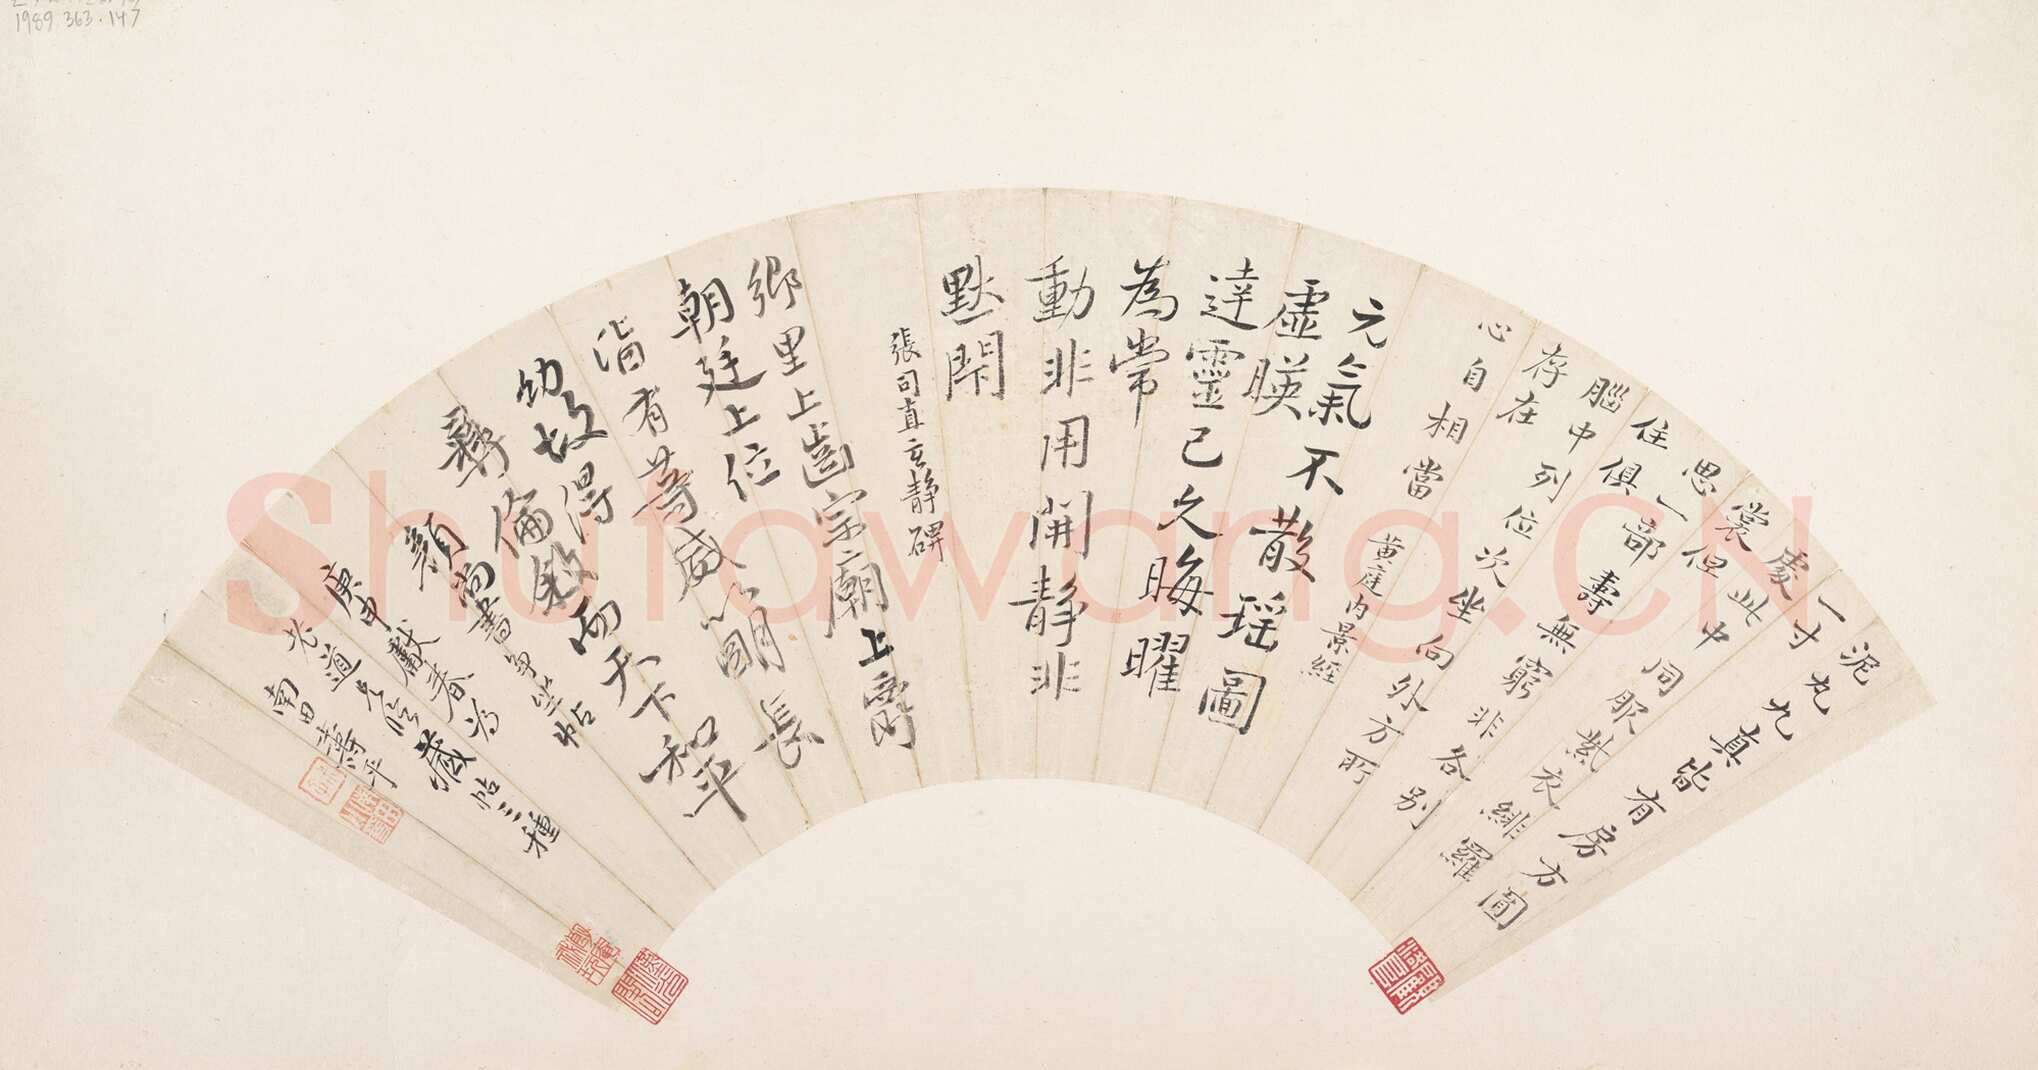 泥丸九真皆有房方圓
一寸
處此中同服紫衣緋羅
裳但
思一部壽無窮非各別
住俱
腦中列位次坐向外方所
存在
心自相當
黃庭內景經
元氣不散瑶圖
虛暎
達靈已久晦曜
為常
動非用開靜非
默閇
張司直玄靜碑
鄉里上齒宗廟上爵
朝廷上位
皆有等威以明長
幼故得
彝倫敘而天下和平
顏尚書爭坐帖
庚申獻春為
老道兄臨藏帖三種
南田壽平
1989.363.147
Shufawang.CN